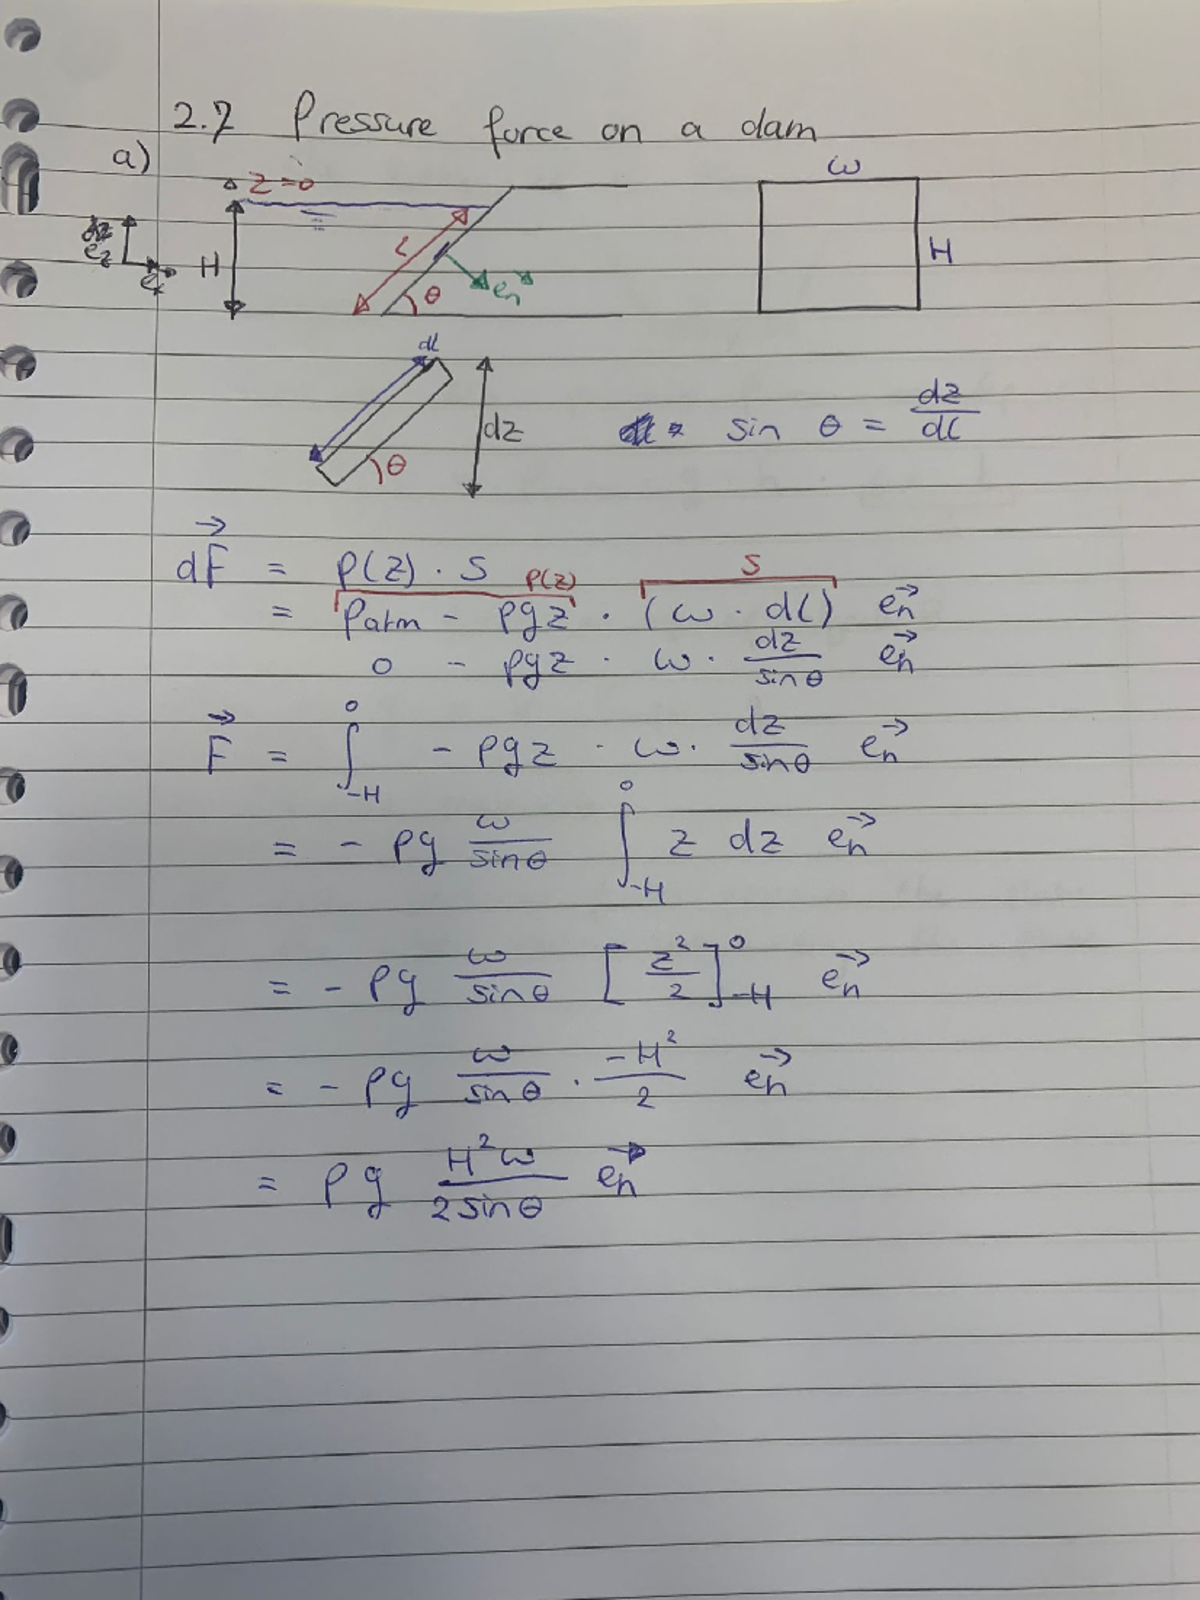 2.7 Pressure force on a dam
a)
z=0
ω
dz
ez
ex
H
L
θ
en
H
dl
dz
θ
sin θ = dz/dl
dF = P(z) · S
P(z) S
= Patm - ρgz · (ω · dl) en
0 - ρgz · ω · dz/sinθ en
F = ∫_-H^0 - ρgz · ω · dz/sinθ en
= - ρg ω/sinθ ∫_-H^0 z dz en
= - ρg ω/sinθ [z²/2]_-H^0 en
= - ρg ω/sinθ · -H²/2 en
= ρg H²ω/2sinθ en